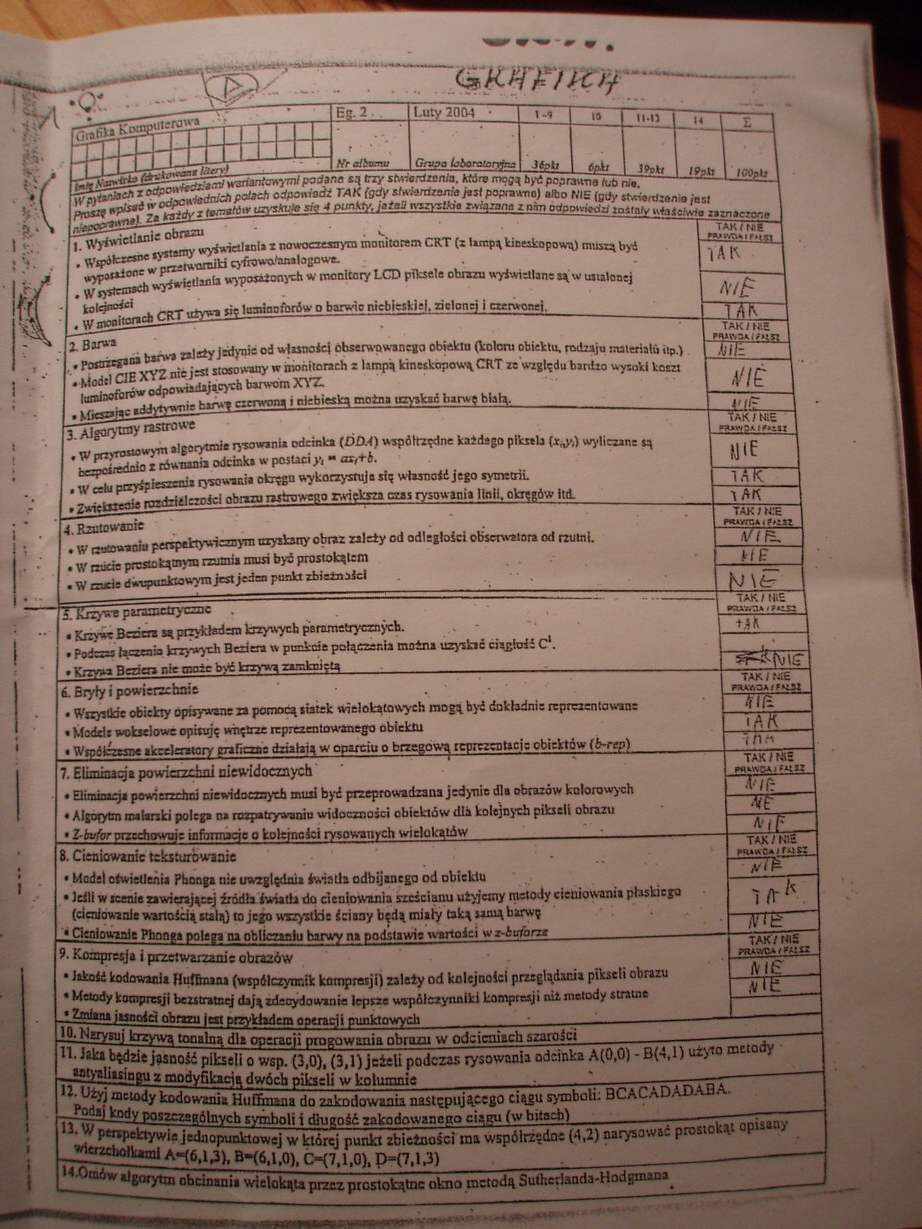 GRAFIKA
Grafika Komputerowa
Eg. 2
Luty 2004
1-9
10
11-13
14
Σ
Imię Nazwisko (drukowane litery)
Nr albumu
Grupa laboratoryjna
36pkt
6pkt
39pkt
19pkt
100pkt
W pytaniach z odpowiedziami wariantowymi podane są trzy stwierdzenia, które mogą być poprawne lub nie.
Proszę wpisać w odpowiednich polach odpowiedź TAK (gdy stwierdzenie jest poprawne) albo NIE (gdy stwierdzenie jest
niepoprawne). Za każdy z tematów uzyskuje się 4 punkty, jeżeli wszystkie związane z nim odpowiedzi zostały właściwie zaznaczone
1. Wyświetlanie obrazu
TAK / NIE
PRAWDA / FAŁSZ
• Współczesne systemy wyświetlania z nowoczesnym monitorem CRT (z lampą kineskopową) muszą być
wyposażone w przetworniki cyfrowo/analogowe.
TAK
• W systemach wyświetlania wyposażonych w monitory LCD piksele obrazu wyświetlane są w ustalonej
kolejności
NIE
• W monitorach CRT używa się luminoforów o barwie niebieskiej, zielonej i czerwonej.
TAK
2. Barwa
TAK / NIE
PRAWDA / FAŁSZ
• Postrzegana barwa zależy jedynie od własności obserwowanego obiektu (koloru obiektu, rodzaju materiału itp.)
NIE
• Model CIE XYZ nie jest stosowany w monitorach z lampą kineskopową CRT ze względu bardzo wysoki koszt
luminoforów odpowiadających barwom XYZ.
NIE
• Mieszając addytywnie barwę czerwoną i niebieską można uzyskać barwę białą.
NIE
3. Algorytmy rastrowe
TAK / NIE
PRAWDA / FAŁSZ
• W przyrostowym algorytmie rysowania odcinka (DDA) współrzędne każdego piksela (xᵢ,yᵢ) wyliczane są
bezpośrednio z równania odcinka w postaci yᵢ = axᵢ+b.
NIE
• W celu przyśpieszenia rysowania okręgu wykorzystuje się własność jego symetrii.
TAK
• Zwiększenie rozdzielczości obrazu rastrowego zwiększa czas rysowania linii, okręgów itd.
TAK
4. Rzutowanie
TAK / NIE
PRAWDA / FAŁSZ
• W rzutowaniu perspektywicznym uzyskany obraz zależy od odległości obserwatora od rzutni.
NIE
• W rzucie prostokątnym rzutnia musi być prostokątem
NIE
• W rzucie dwupunktowym jest jeden punkt zbieżności
NIE
5. Krzywe parametryczne
TAK / NIE
PRAWDA / FAŁSZ
• Krzywe Beziera są przykładem krzywych parametrycznych.
TAK
• Podczas łączenia krzywych Beziera w punkcie połączenia można uzyskać ciągłość C¹.
• Krzywa Beziera nie może być krzywą zamkniętą
NIE
6. Bryły i powierzchnie
TAK / NIE
PRAWDA / FAŁSZ
• Wszystkie obiekty opisywane za pomocą siatek wielokątowych mogą być dokładnie reprezentowane
NIE
• Modele wokselowe opisuję wnętrze reprezentowanego obiektu
TAK
• Współczesne akceleratory graficzne działają w oparciu o brzegową reprezentacje obiektów (b-rep)
TAK
7. Eliminacja powierzchni niewidocznych
TAK / NIE
PRAWDA / FAŁSZ
• Eliminacja powierzchni niewidocznych musi być przeprowadzana jedynie dla obrazów kolorowych
NIE
• Algorytm malarski polega na rozpatrywaniu widoczności obiektów dla kolejnych pikseli obrazu
NIE
• Z-bufor przechowuje informacje o kolejności rysowanych wielokątów
NIE
8. Cieniowanie teksturowanie
TAK / NIE
PRAWDA / FAŁSZ
• Model oświetlenia Phonga nie uwzględnia światła odbijanego od obiektu
NIE
• Jeśli w scenie zawierającej źródła światła do cieniowania sześcianu użyjemy metody cieniowania płaskiego
(cieniowanie wartością stałą) to jego wszystkie ściany będą miały taką samą barwę
TAK
• Cieniowanie Phonga polega na obliczaniu barwy na podstawie wartości w z-buforze
NIE
9. Kompresja i przetwarzanie obrazów
TAK / NIE
PRAWDA / FAŁSZ
• Jakość kodowania Huffmana (współczynnik kompresji) zależy od kolejności przeglądania pikseli obrazu
NIE
• Metody kompresji bezstratnej dają zdecydowanie lepsze współczynniki kompresji niż metody stratne
NIE
• Zmiana jasności obrazu jest przykładem operacji punktowych
10. Narysuj krzywą tonalną dla operacji progowania obrazu w odcieniach szarości
11. Jaka będzie jasność pikseli o wsp. (3,0), (3,1) jeżeli podczas rysowania odcinka A(0,0) - B(4,1) użyto metody
antyaliasingu z modyfikacją dwóch pikseli w kolumnie
12. Użyj metody kodowania Huffmana do zakodowania następującego ciągu symboli: BCACADADABA.
Podaj kody poszczególnych symboli i długość zakodowanego ciągu (w bitach)
13. W perspektywie jednopunktowej w której punkt zbieżności ma współrzędne (4,2) narysować prostokąt opisany
wierzchołkami A=(6,1,3), B=(6,1,0), C=(7,1,0), D=(7,1,3)
14.Omów algorytm obcinania wielokąta przez prostokątne okno metodą Sutherlanda-Hodgmana